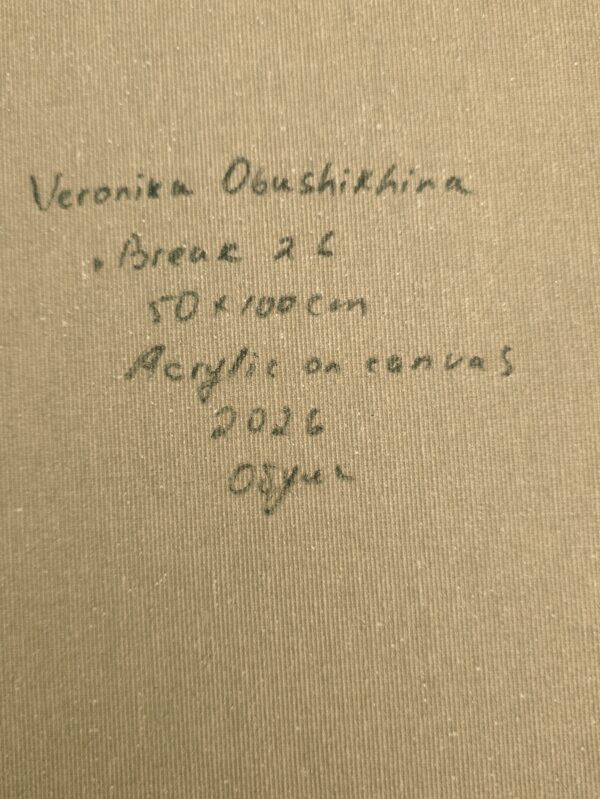 Veronika Obushikhina
Break 26
50 x 100 cm
Acrylic on canvas
2026